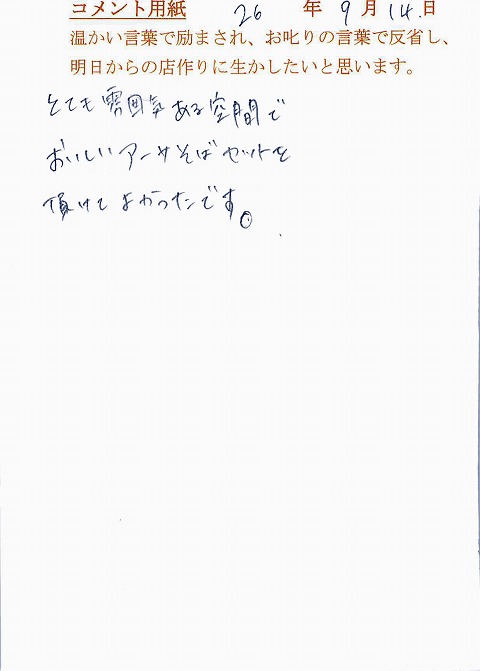 コメント用紙 26 年 9 月 14 日
温かい言葉で励まされ、お叱りの言葉で反省し、
明日からの店作りに生かしたいと思います。
とても雰囲気ある空間で
おいしいアーサそばセットを
頂けてよかったです。